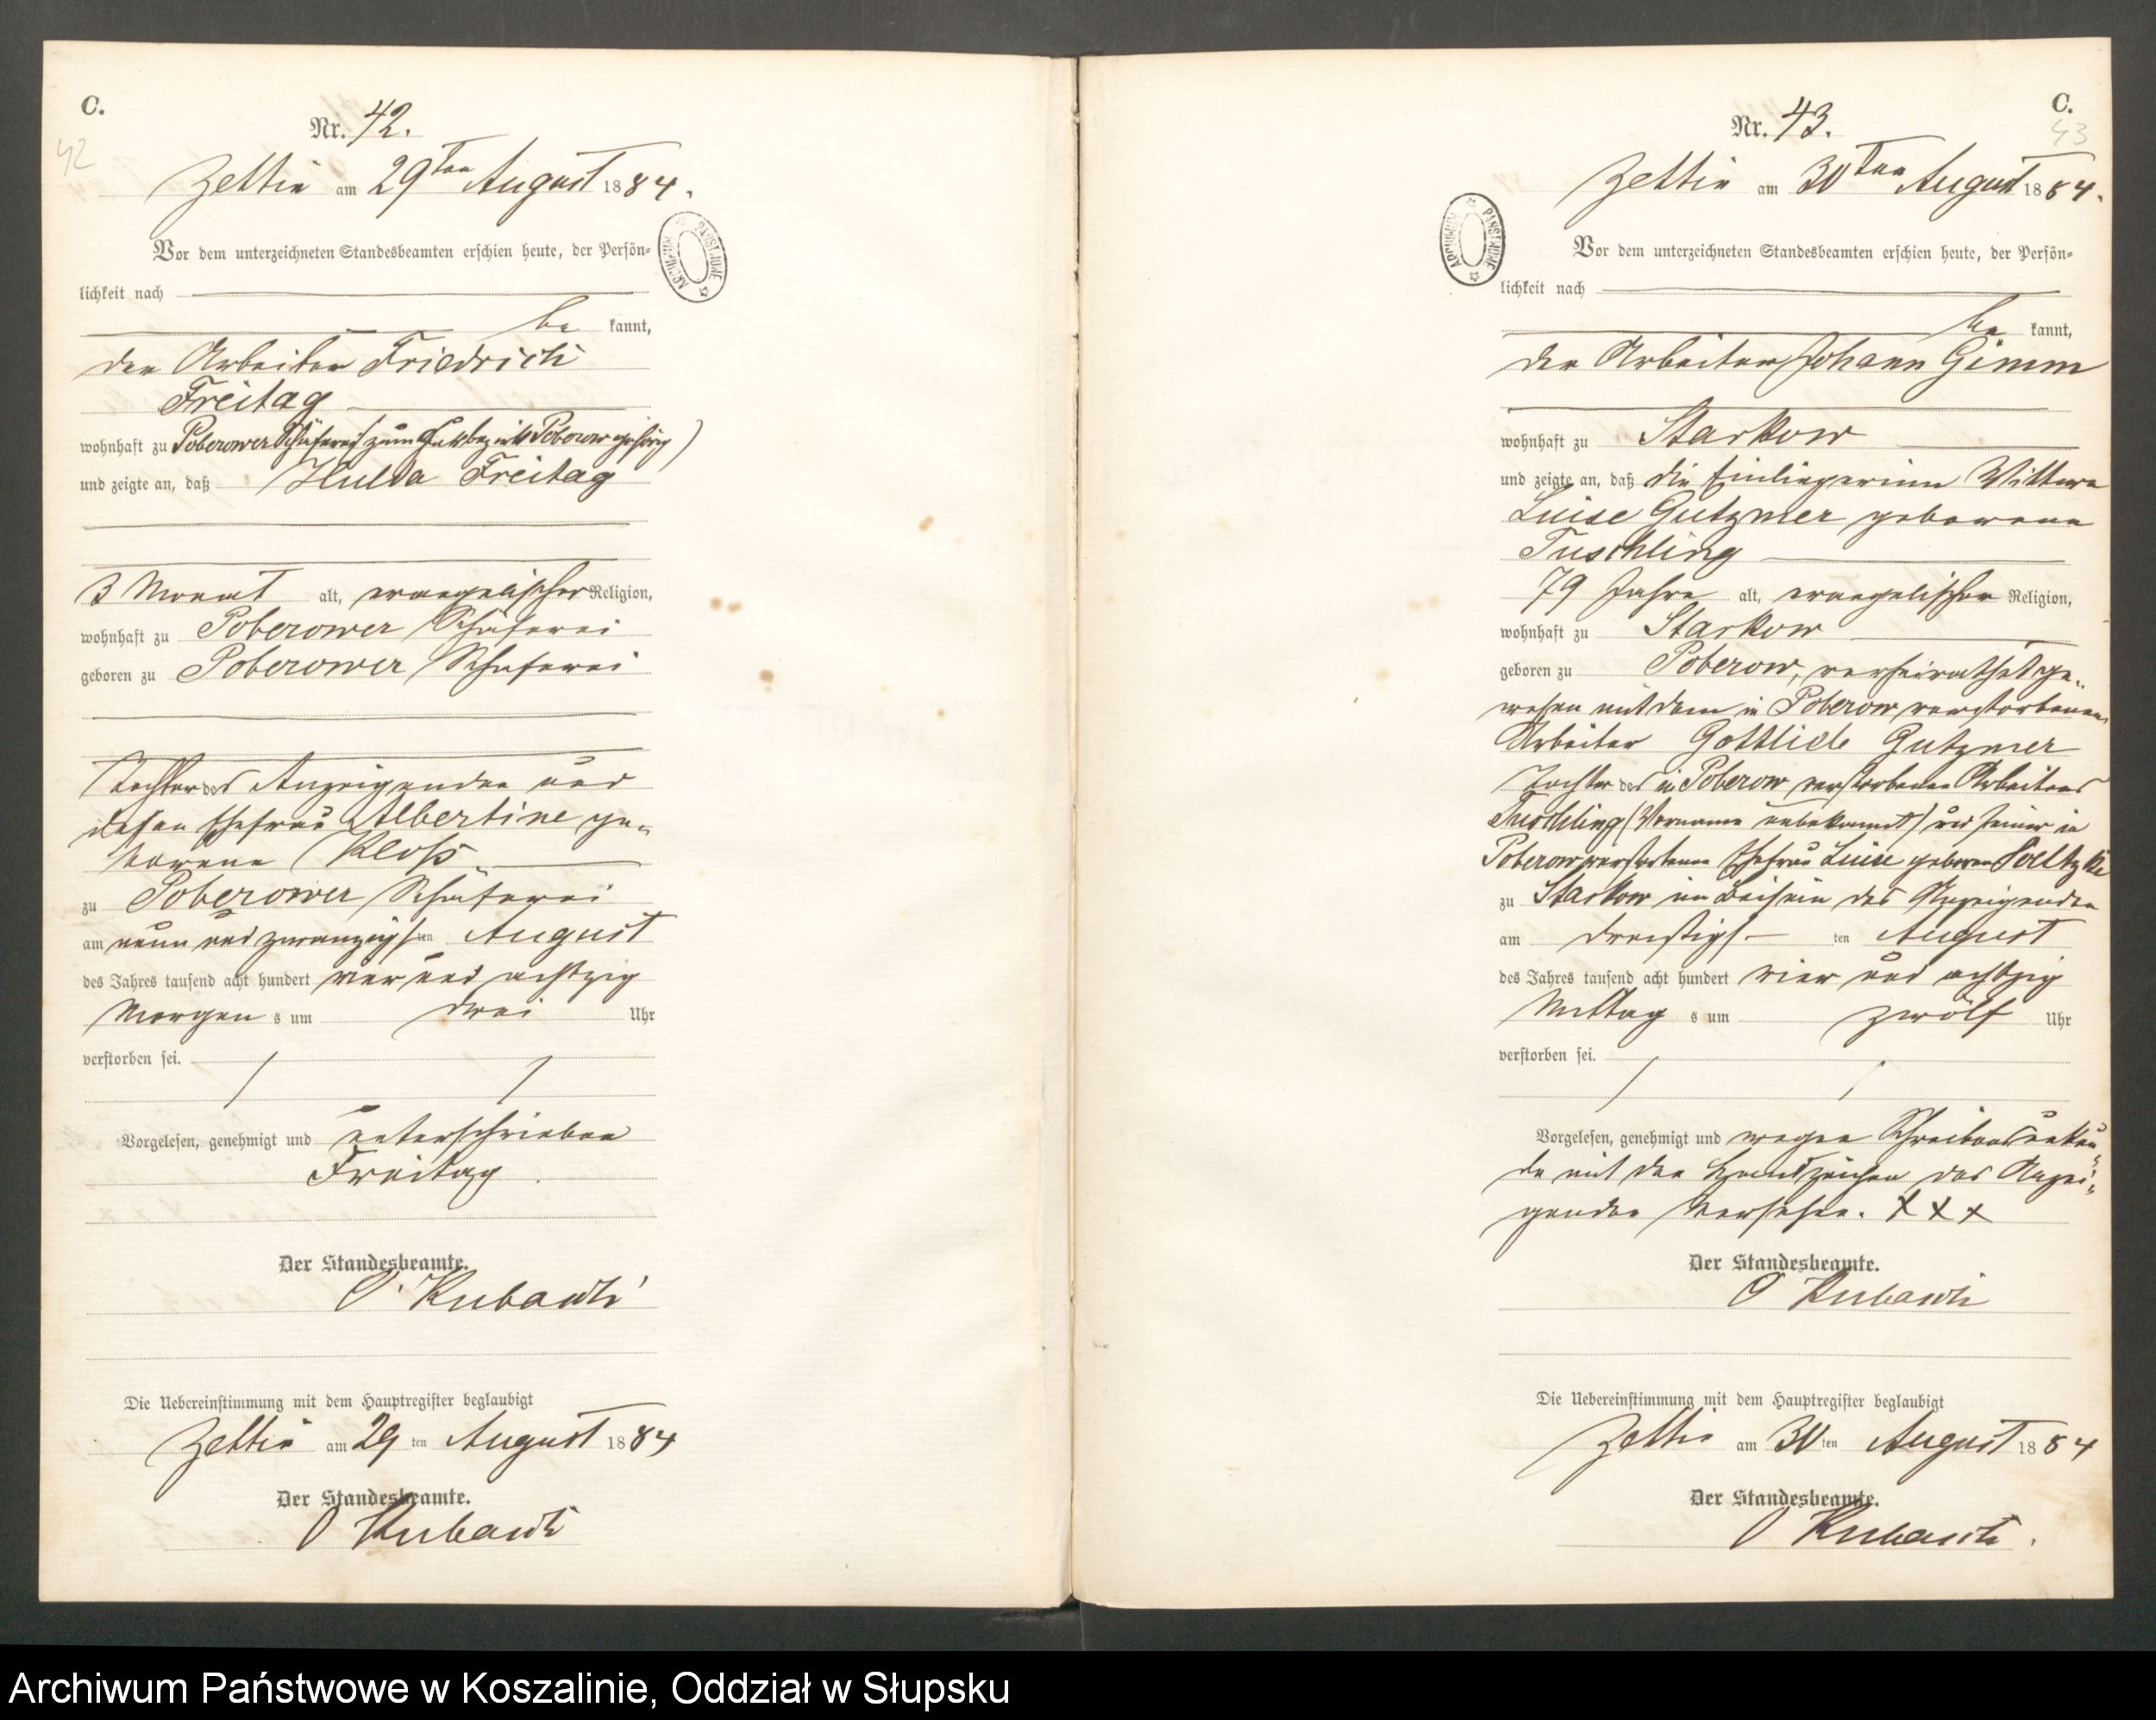 C.
42
Nr. 42.
Zettin am 29ten August 1884.
Vor dem unterzeichneten Standesbeamten erschien heute, der Persön=
lichkeit nach
be kannt,
der Arbeiter Friedrich
Freitag
wohnhaft zu Poberower Schäferei (zum Gutsbezirk Poberow gehörig)
und zeigte an, daß Hulda Freitag
3 Monat alt, evangelischer Religion,
wohnhaft zu Poberower Schäferei
geboren zu Poberower Schäferei
Tochter des Anzeigenden und
dessen Ehefrau Albertine ge=
borene Kloß
zu Poberower Schäferei
am neun und zwanzigsten August
des Jahres tausend acht hundert vier und achtzig
Morgen s um drei Uhr
verstorben sei.
Vorgelesen, genehmigt und unterschrieben
Freitag
Der Standesbeamte.
O. Kubasch
Die Uebereinstimmung mit dem Hauptregister beglaubigt
Zettin am 29 ten August 1884
Der Standesbeamte.
O Kubasch
ARCHIWUM PAŃSTWOWE
C.
43
Nr. 43.
Zettin am 30ten August 1884.
ARCHIWUM PAŃSTWOWE
Vor dem unterzeichneten Standesbeamten erschien heute, der Persön=
lichkeit nach
be kannt,
der Arbeiter Johann Gimm
wohnhaft zu Starkow
und zeigte an, daß die Einliegerinn Wittwe
Luise Gutzmer geborene
Tuschling
79 Jahre alt, evangelischer Religion,
wohnhaft zu Starkow
geboren zu Poberow, verheirathet ge=
wesen mit dem in Poberow verstorbenen
Arbeiter Gottlieb Gutzmer
Tochter des in Poberow verstorbenen Arbeiters
Tuschling (Vorname unbekannt) und seiner in
Poberow verstorbenen Ehefrau Luise geboren
zu Starkow im Beisein des Anzeigenden
am dreißigs ten August
des Jahres tausend acht hundert vier und achtzig
Mittag s um zwölf Uhr
verstorben sei.
Vorgelesen, genehmigt und wegen Schreibensunkun=
de mit den Handzeichen des Anzei=
genden versehen. XXX
Der Standesbeamte.
O Kubasch
Die Uebereinstimmung mit dem Hauptregister beglaubigt
Zettin am 30 ten August 1884
Der Standesbeamte.
O Kubasch.
Archiwum Państwowe w Koszalinie, Oddział w Słupsku